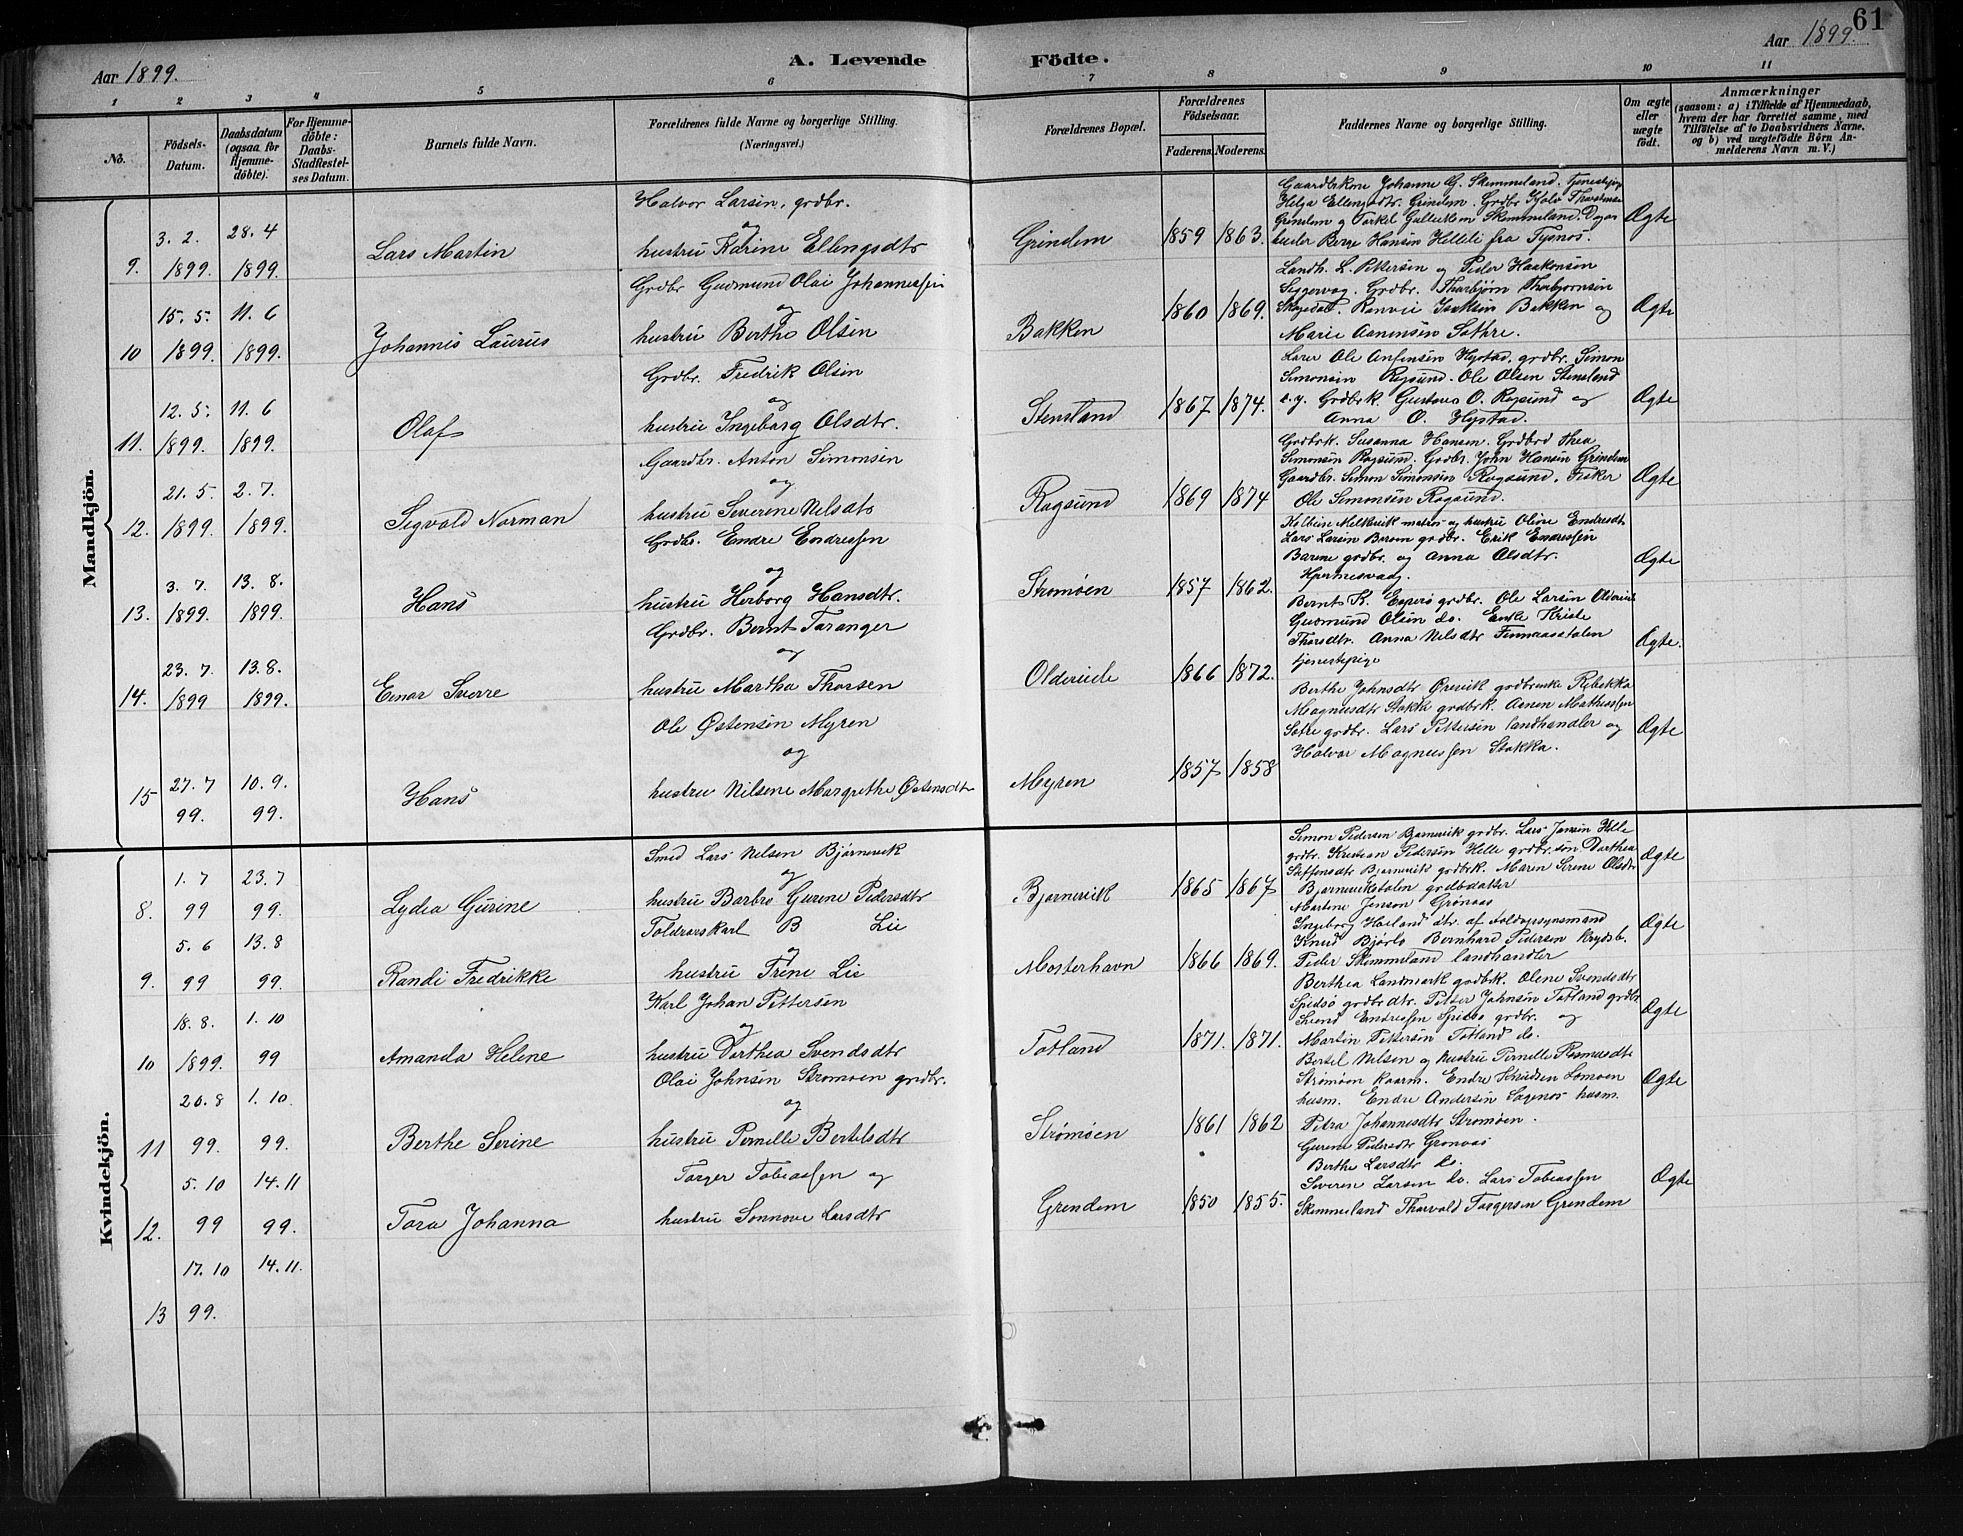 61
Aar 1899.
A. Levende
Födte.
Aar 1899.
1 2 3 4 5 6 7 8 9 10 11
No.
Födsels-Datum.
Daabsdatum (ogsaa for Hjemmedöbte).
For Hjemmedöbte: Daabs-Stadfæstelses Datum.
Barnets fulde Navn.
Forældrenes fulde Navne og borgerlige Stilling.
(Næringsvei.)
Forældrenes Bopæl.
Forældrenes Födselsaar.
Faderens. Moderens.
Faddernes Navne og borgerlige Stilling.
Om ægte eller uægte födt.
Anmærkninger
(saasom: a) i Tilfælde af Hjemmedaab, hvem der har forrettet samme, med Tilföielse af to Daabsvidners Navne, og b) ved uægtefödte Börn Anmelderens Navn m. V.)
Mandkjön.
9. 3. 2. 1899. 28. 4 1899. Lars Martin
Halvor Larsen, grdbr.
og
hustru Karine Ellengsdtr
Grindem 1859 1863.
Gaardbrkone Johanne G. Skimmeland. Tjenestepige
Helga Ellengsdtr. Grindem. Grdbr
Grindem og Torkel Skimmeland.
Berge Hansen fra Tysnes.
Ægte
10 15. 5. 1899. 11. 6 1899. Johannes Laurus
Grdbr Gudmund Olai Johannessen
og
hustru Berthe Olsen
Bakken 1860 1869.
Landh. L. Pettersen og Peder Haakonsen
Grdbr. Thorbjørn Thorbjørnsen
Isaksen Bakken og
Marie Aanensen Sætre.
Ægte
11. 12. 5. 1899. 11. 6 1899. Olaf
Grdbr. Fredrik Olsen
og
hustru Ingeborg Olsdtr.
Stensland 1867 1874.
Lærer Ole Hystad, grdbr. Simon
Simonsen Røgsund. Ole Olsen Stensland
e. y. Grdbrk Gustava O. Røgsund og
Anna O. Hystad.
Ægte
12. 21. 5. 1899. 2. 7. 1899. Sigvald Norman
Gaardbr. Anton Simonsen
og
hustru Severine Nilsdtr
Røgsund 1869 1874
Grdbrk. Susanna Hansen. Thea
Simonsen Røgsund. Grdbr. John Hansen Grindem
Gaardbr. Simon Simonsen Røgsund. Fisker
Ole Simonsen Røgsund.
Ægte
13. 3. 7. 1899. 13. 8. 1899. Hans
Grdbr. Endre Endressen
og
hustru Herborg Hansdtr.
Strømøen 1857 1862.
matros og hustru Oline Endresdtr
Lars Larsen grdbr. Erik Endressen
grdbr. og Anna Olsdtr.
Ægte
14. 23. 7. 1899 13. 8. 1899. Einar Sverre
Grdbr. Bernt Taranger
og
hustru Martha Thorsen
Oldervik 1866 1872.
Bernt K. Esperø grdbr. Ole Larsen Oldervik
Gudmund Olsen do. Enke Kriste
Thorsdtr. Anna Nilsdtr Finnaasstølen
tjenestepige
Ægte.
15 27. 7 99. 10. 9. 99. Hans
Ole Østensen Myren
og
hustru Nilsene Margrethe Østensdtr
Myren 1857 1858
Berthe Johnsdtr Ørevik grdbrenke Rebekka
Magnusdtr Stokka grdbrk. Aanen Mathiassen
Sætre grdbr. Lars Pettersen landhandler og
Halvor Magnussen Stokka.
Ægte
Kvindekjön.
8. 1. 7 99 23. 7 99. Lydia Gurine
Smed Lars Nilsen Bjørnevik
og
hustru Barbro Gurene Pedersdtr
Bjørnevik 1865 1867
Simon Pedersen Bjørnevik grdbr. Lars Jansen Helle
grdbr. Kristian Pedersen Helle grdbr.søn Dorthea
Steffensdtr Bjørnevik grdbrk. Maren Serene Olsdtr
Bjørnevikstølen grdbdatter
Ægte
9. 5. 6 99 13. 8 99. Randi Fredrikke
Toldrorskarl B Lie
og
hustru Trine Lie
Mosterhavn 1866 1869.
Martine Jenson Grønaas
Ingeborg Høiland dtr. af Toldopsynsmand
Knud Bjørlo Bernhard Pedersen Krydsb.
Peder Skimmeland landhandler
Ægte
10 18. 8. 1899. 1. 10 99 Amanda Helene
Karl Johan Pettersen
og
hustru Dorthea Svendsdtr
Totland 1871. 1871.
Berthea Landmark grdbrk. Olene Svendsdtr
Spidsø grdbr dtr. Petter Johnsen Totland grdbr
Svend Endressen Spidsø grdbr. og
Martin Pettersen Totland do.
Ægte
11 26. 8 99. 1. 10. 99. Berthe Serine
Olai Johnsen Strømøen grdbr.
og
hustru Pernille Bertelsdtr
Strømøen 1861 1862
Bertel Nilsen og hustru Pernille Rasmusdtr
Strømøen kaarm. Endre Knudsen Lomøen
husm. Endre Andersen Sagenes husm.
Petra Johannesdtr Strømøen.
Ægte
12. 5. 10 99 14. 11 99. Tora Johanna
Torger Tobiassen og
hustru Sønnove Larsdtr
Grendem 1850 1855.
Gurene Pedersdtr Grønaas
Berthe Larsdtr do.
Severen Larsen do. Lars Tobiassen
Skimmeland Thorvald Torgersen Grendem
Ægte
13 17. 10 99. 14. 11.